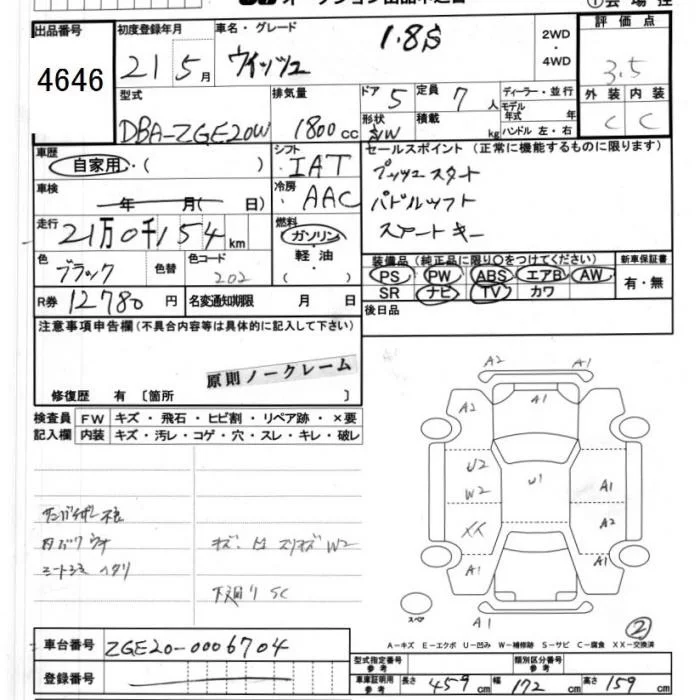 出品番号 初度登録年月 車名・グレード 評価点
4646 21年 5月 ウィッシュ 1.8S 2WD・4WD 3.5
型式 排気量 ドア 5 定員 7人 ディーラー・並行 外装 内装
DBA-ZGE20W 1800cc 形状 S/W 積載 kg モデル年式 年 ハンドル 左・右 C C
車歴 シフト セールスポイント (正常に機能するものに限ります)
自家用・( ) IAT プッシュスタート
車検 年 月( 日) 冷房 AAC パドルシフト
走行 21万0千154km 燃料 ガソリン・軽油・( ) スマートキー
色 ブラック 色替 色コード 202 装備品 (純正品に限り○をつけてください) 新車保証書
PS PW ABS エアB AW 有・無
SR ナビ TV カワ
R券 12780円 名変通知期限 月 日 後日品
注意事項申告欄 (不具合内容等は具体的に記入して下さい)
原則ノークレーム
修復歴 有 〔箇所 〕
検査員 FW キズ・飛石・ヒビ割・リペア跡・×要
記入欄 内装 キズ・汚レ・コゲ・穴・スレ・キレ・破レ
A2 A1
A2 A1
U2 U1
W2 A1
XX A2
A1 A1
スペア A1
W2
下廻り SC
②
A-キズ E-エクボ U-凹み W-補修跡 S-サビ C-腐食 XX-交換済
車台番号 ZGE20-0006704
登録番号
型式指定番号 参考 類別区分番号 参考
車庫証明用 参考 長さ 459cm 幅 172cm 高さ 159cm